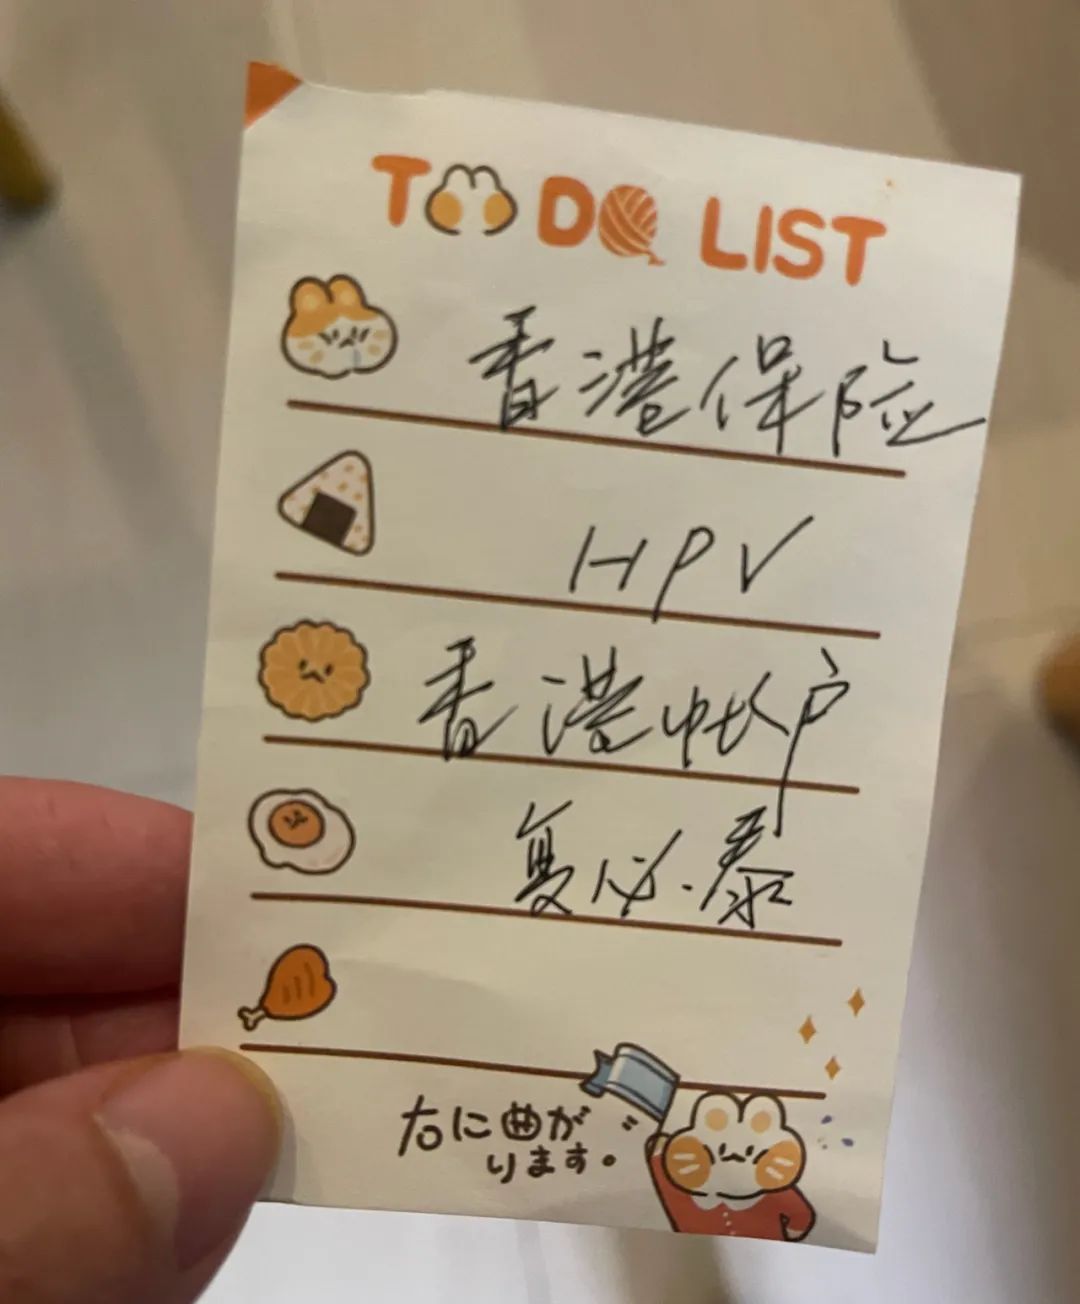 TO DO LIST
香港保险
HPV
香港帐户
复必泰
右に曲が
ります。